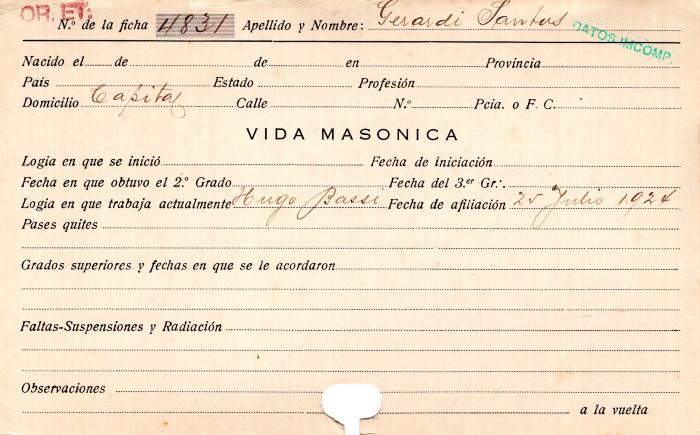 OR. ET.
N.º de la ficha 4831 Apellido y Nombre: Gerardi Santos
DATOS IMCOMP.
Nacido el de de en Provincia
País Estado Profesión
Domicilio Capital Calle N.º Pcia. o F. C.
VIDA MASONICA
Logia en que se inició Fecha de iniciación
Fecha en que obtuvo el 2.º Grado Fecha del 3.er Gr∴
Logia en que trabaja actualmente Hugo Bassi Fecha de afiliación 25 Julio 1924
Pases quites
Grados superiores y fechas en que se le acordaron
Faltas-Suspensiones y Radiación
Observaciones
a la vuelta